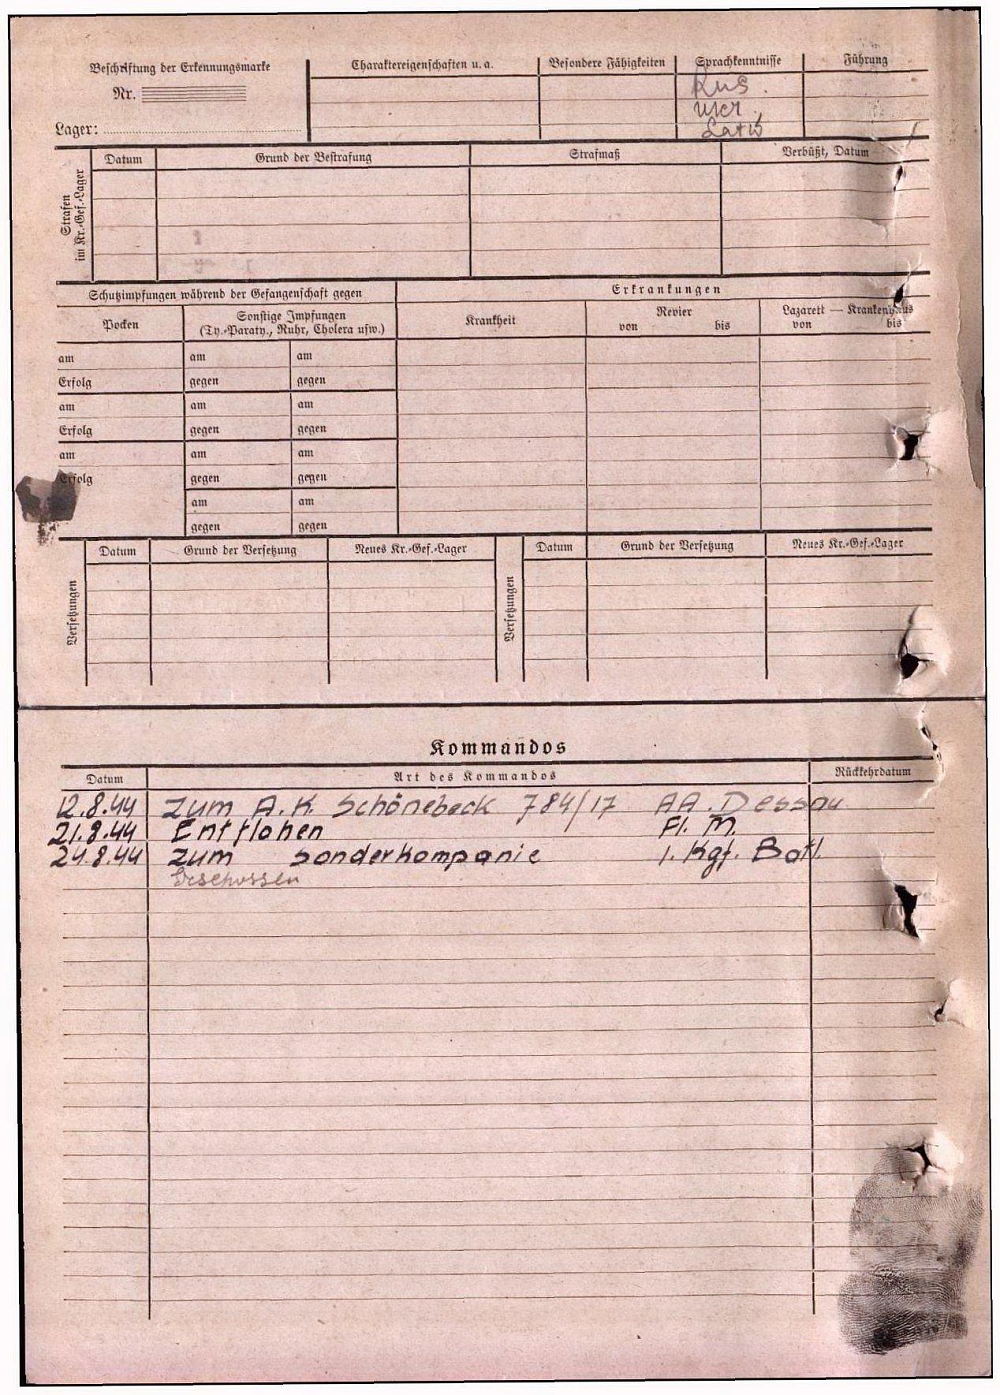 Beschriftung der Erkennungsmarke
Nr.
Lager:
Charaktereigenschaften u. a.
Besondere Fähigkeiten
Sprachkenntnisse
Führung
Rus.
Lager
Strafen
im Kr.-Gef.-Lager
Datum
Grund der Bestrafung
Strafmaß
Verbüßt, Datum
Schutzimpfungen während der Gefangenschaft gegen
Erkrankungen
Pocken
Sonstige Impfungen
(Ty.-Paraty., Ruhr, Cholera usw.)
Krankheit
Revier
von bis
Lazarett — Krankenhaus
von bis
am am am
Erfolg gegen gegen
am am am
Erfolg gegen gegen
am am am
Erfolg gegen gegen
am am
gegen gegen
Versetzungen
Datum
Grund der Versetzung
Neues Kr.-Gef.-Lager
Versetzungen
Datum
Grund der Versetzung
Neues Kr.-Gef.-Lager
Kommandos
Datum
Art des Kommandos
Rückkehrdatum
12.8.44 zum A.K. Schönebeck 784/17 AA. Dessau
21.8.44 Entflohen Fl. M.
24.8.44 zum Sonderkompanie 1. Kgf. Batl.
Erschossen